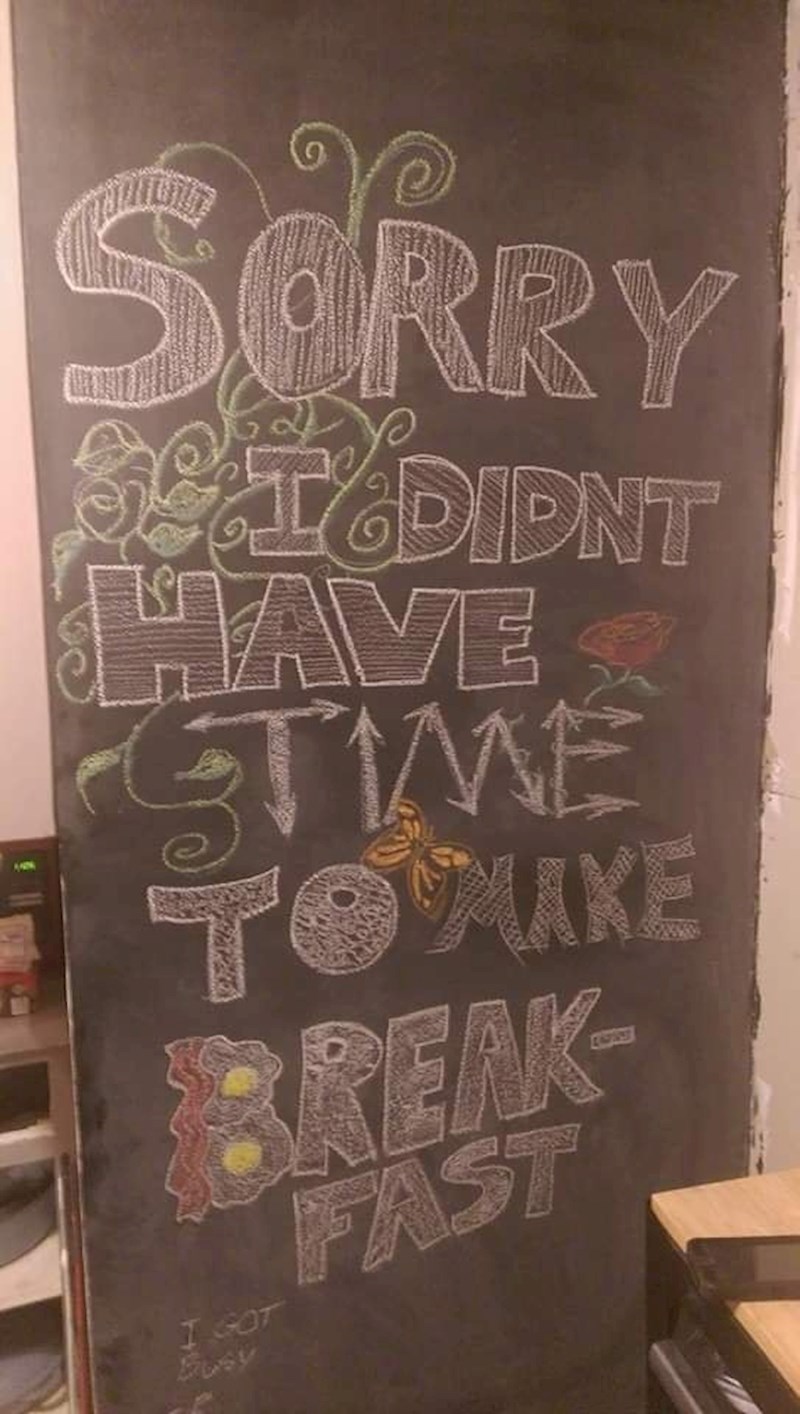 SORRY
I DIDNT
HAVE
TIME
TO MAKE
BREAK-
FAST
I GOT
BUSY